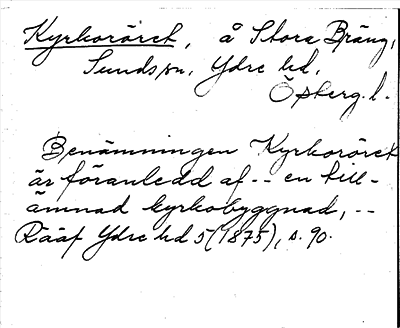 Kyrkoröret, å Stora Bräng,
Sunds sn, Ydre hd,
Östergl.
Benämningen Kyrkoröret
är föranledd af -- en till-
ämnad kyrkobyggnad, --
Rääf Ydre hd 5 (1875), s. 90.